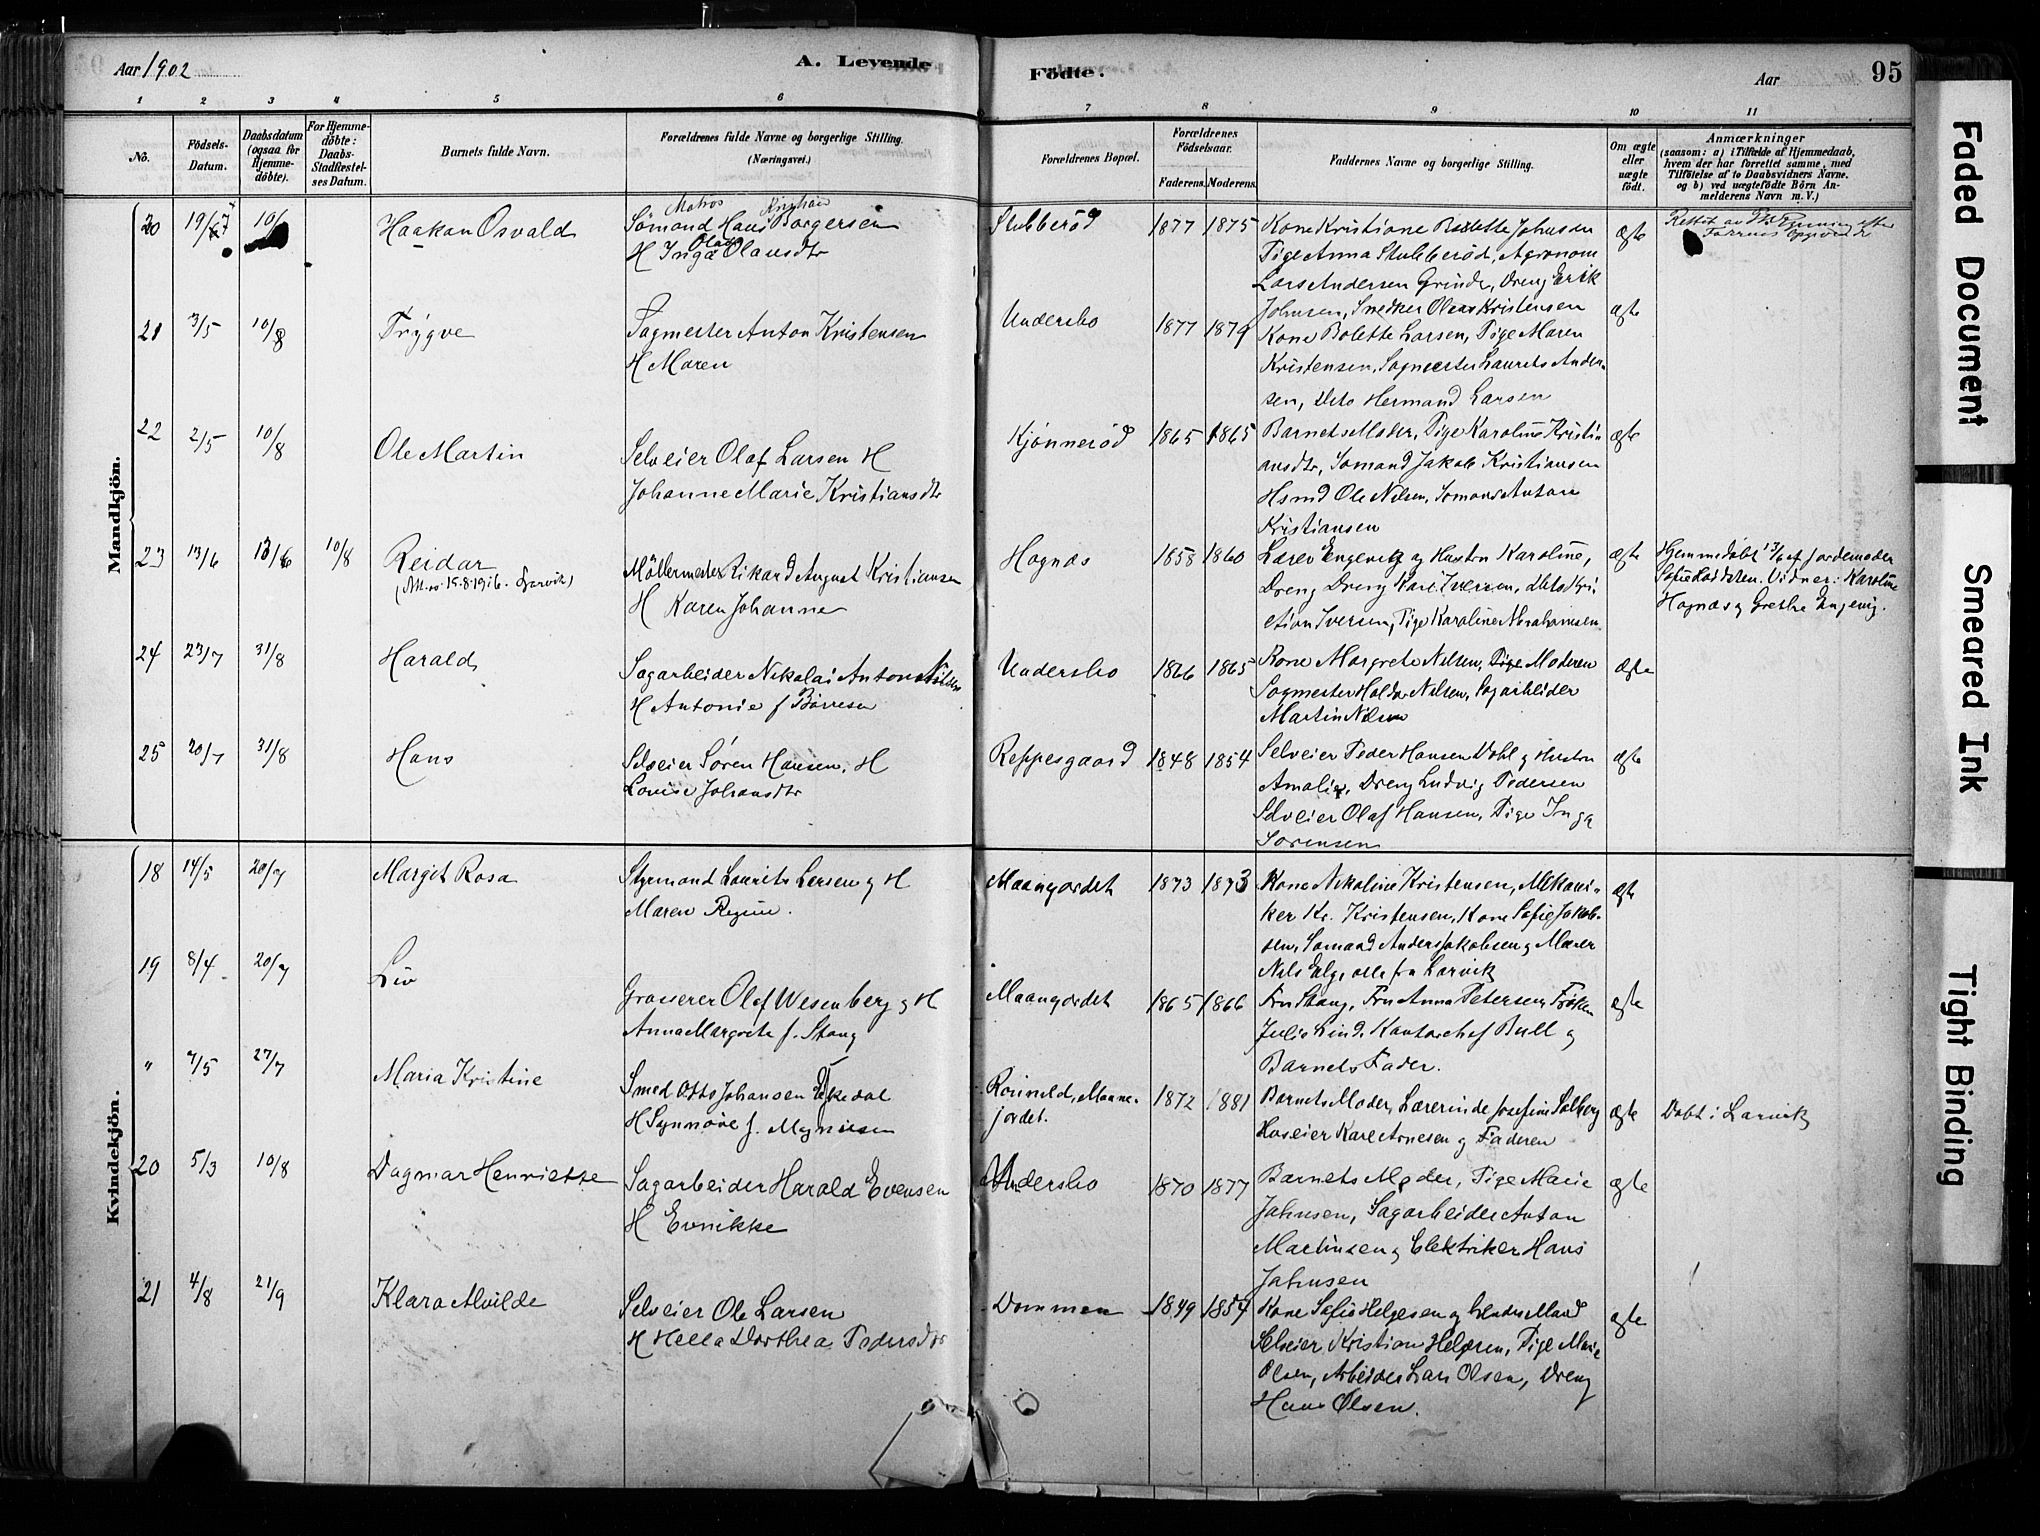 Aar 1902
A. Levende
Födte.
Aar
95
1 2 3 4 5 6 7 8 9 10 11
No.
Födsels-Datum.
Daabsdatum (ogsaa for Hjemme-döbte).
For Hjemme-döbte: Daabs-Stadfæstel-ses Datum.
Barnets fulde Navn.
Forældrenes fulde Navne og borgerlige Stilling. (Næringsvei.)
Forældrenes Bopæl.
Forældrenes Födselsaar.
Faderens. Moderens.
Faddernes Navne og borgerlige Stilling.
Om ægte eller uægte födt.
Anmærkninger
(saasom: a) i Tilfælde af Hjemmedaab, hvem der har forrettet samme, med Tilföielse af to Daabsvidners Navne. og b) ved uægtefödte Börn An-melderens Navn m. V.)
Mandkjön.
20 19/7 10/8 Haakon Osvald
Matros Kristian
Sømand Hans Borgersen
Olava
H Inga Olausdtr
Stubberød 1877 1875
Kone Kristiane Bolette Johnsen
Pige Anna Stubberød, Agronom
Lars Andersen Grinde, Dreng Erik
Johnsen, Snedker Olaus Kristensen
ægte
21 3/5 10/8 Trygve
Sagmester Anton Kristensen
H Maren
Undersbo 1877 1879
Kone Bolette Larsen, Pige Maren
Kristensen, Sagmester Laurits Ander-
sen, dito Hermand Larsen
ægte
22 2/5 10/8 Ole Martin
Selveier Olaf Larsen H
Johanne Marie Kristiansdtr
Kjønnerød 1865 1865
Barnets Moder, Pige Karoline Kristi-
ansdtr, Sømand Jakob Kristiansen
Hsmd Ole Nilsen, Sømand Anton
Kristiansen
ægte
23 13/6 13/6 10/8 Reidar
Möllermester Rikard August Kristiansen
H Karen Johanne
Hognæs 1858 1860
Lærer Engevig og Hustru Karoline,
Dreng Dreng Kare Iversen, dito Kri-
stian Iversen, Pige Karoline Abrahamsen
ægte
Hjemmedøbt 13/6 af Jordemoder
Vidner: Karoline
Hognæs og Grethe Engevig.
24 23/7 31/8 Harald
Sagarbeider Nikolai Anton Nilsen
H Antonie f Börresen
Undersbo 1866 1865
Kone Margrete Nilsen, Pige Moderen
Sagmester Haldor Nilsen, Sagarbeider
Martin Nilsen
ægte
25 20/7 31/8 Hans
Selveier Søren Hansen, H
Lovise Johansdtr
Reppesgaard 1848 1854
Selveier Peder Hansen Dahl og Hustru
Amalie, Dreng Ludvig Pedersen
Selveier Olaf Hansen, Pige Inga
Sørensen
ægte
Kvindekjön.
18 14/5 20/7 Margit Rosa
Styrmand Laurits Larsen og H
Maren Regine.
Maanejordet 1873 1873
Kone Nikoline Kristensen, Mekani-
ker Kr. Kristensen, Kone Sofie Jakob-
sen, Sømand Anders Jakobsen og Murer
Nils Elg, alle fra Larvik
ægte
19 8/4 20/7 Liv
Grosserer Olaf Wesenberg og H
Anna Margrete f. Stang
Maanejordet 1865 1866
Fru Stang, Fru Anna Petersen, Frøken
Julie Lind, Kontorchef Bull og
Barnets Fader.
ægte
" 7/5 27/7 Maria Kristine
Smed Otto Johansen Ekedal
H Synnøve f. Magnusen
Maane-
jordet. 1872 1881
Barnets Moder, Lærerinde Josefine Solberg
Huseier Karl Arnesen og Faderen
ægte
Døbt i Larvik
20 5/3 10/8 Dagmar Henriette
Sagarbeider Harald Evensen
H Evnikke
Undersbo 1870 1877
Barnets Moder, Pige Marie
Johnsen, Sagarbeider Anton
Martinsen og Elektriker Hans
Johnsen
ægte
21 4/8 21/9 Klara Alvilde
Selveier Ole Larsen
H Hella Dorthea Pedersdtr
Dammen 1849 1854
Kone Sofie Helgesen og hendes Mand
Selveier Kristian Helgesen, Pige Marie
Olsen, Arbeider Lars Olsen, Dreng
Hans Olsen.
ægte
Faded Document
Smeared Ink
Tight Binding